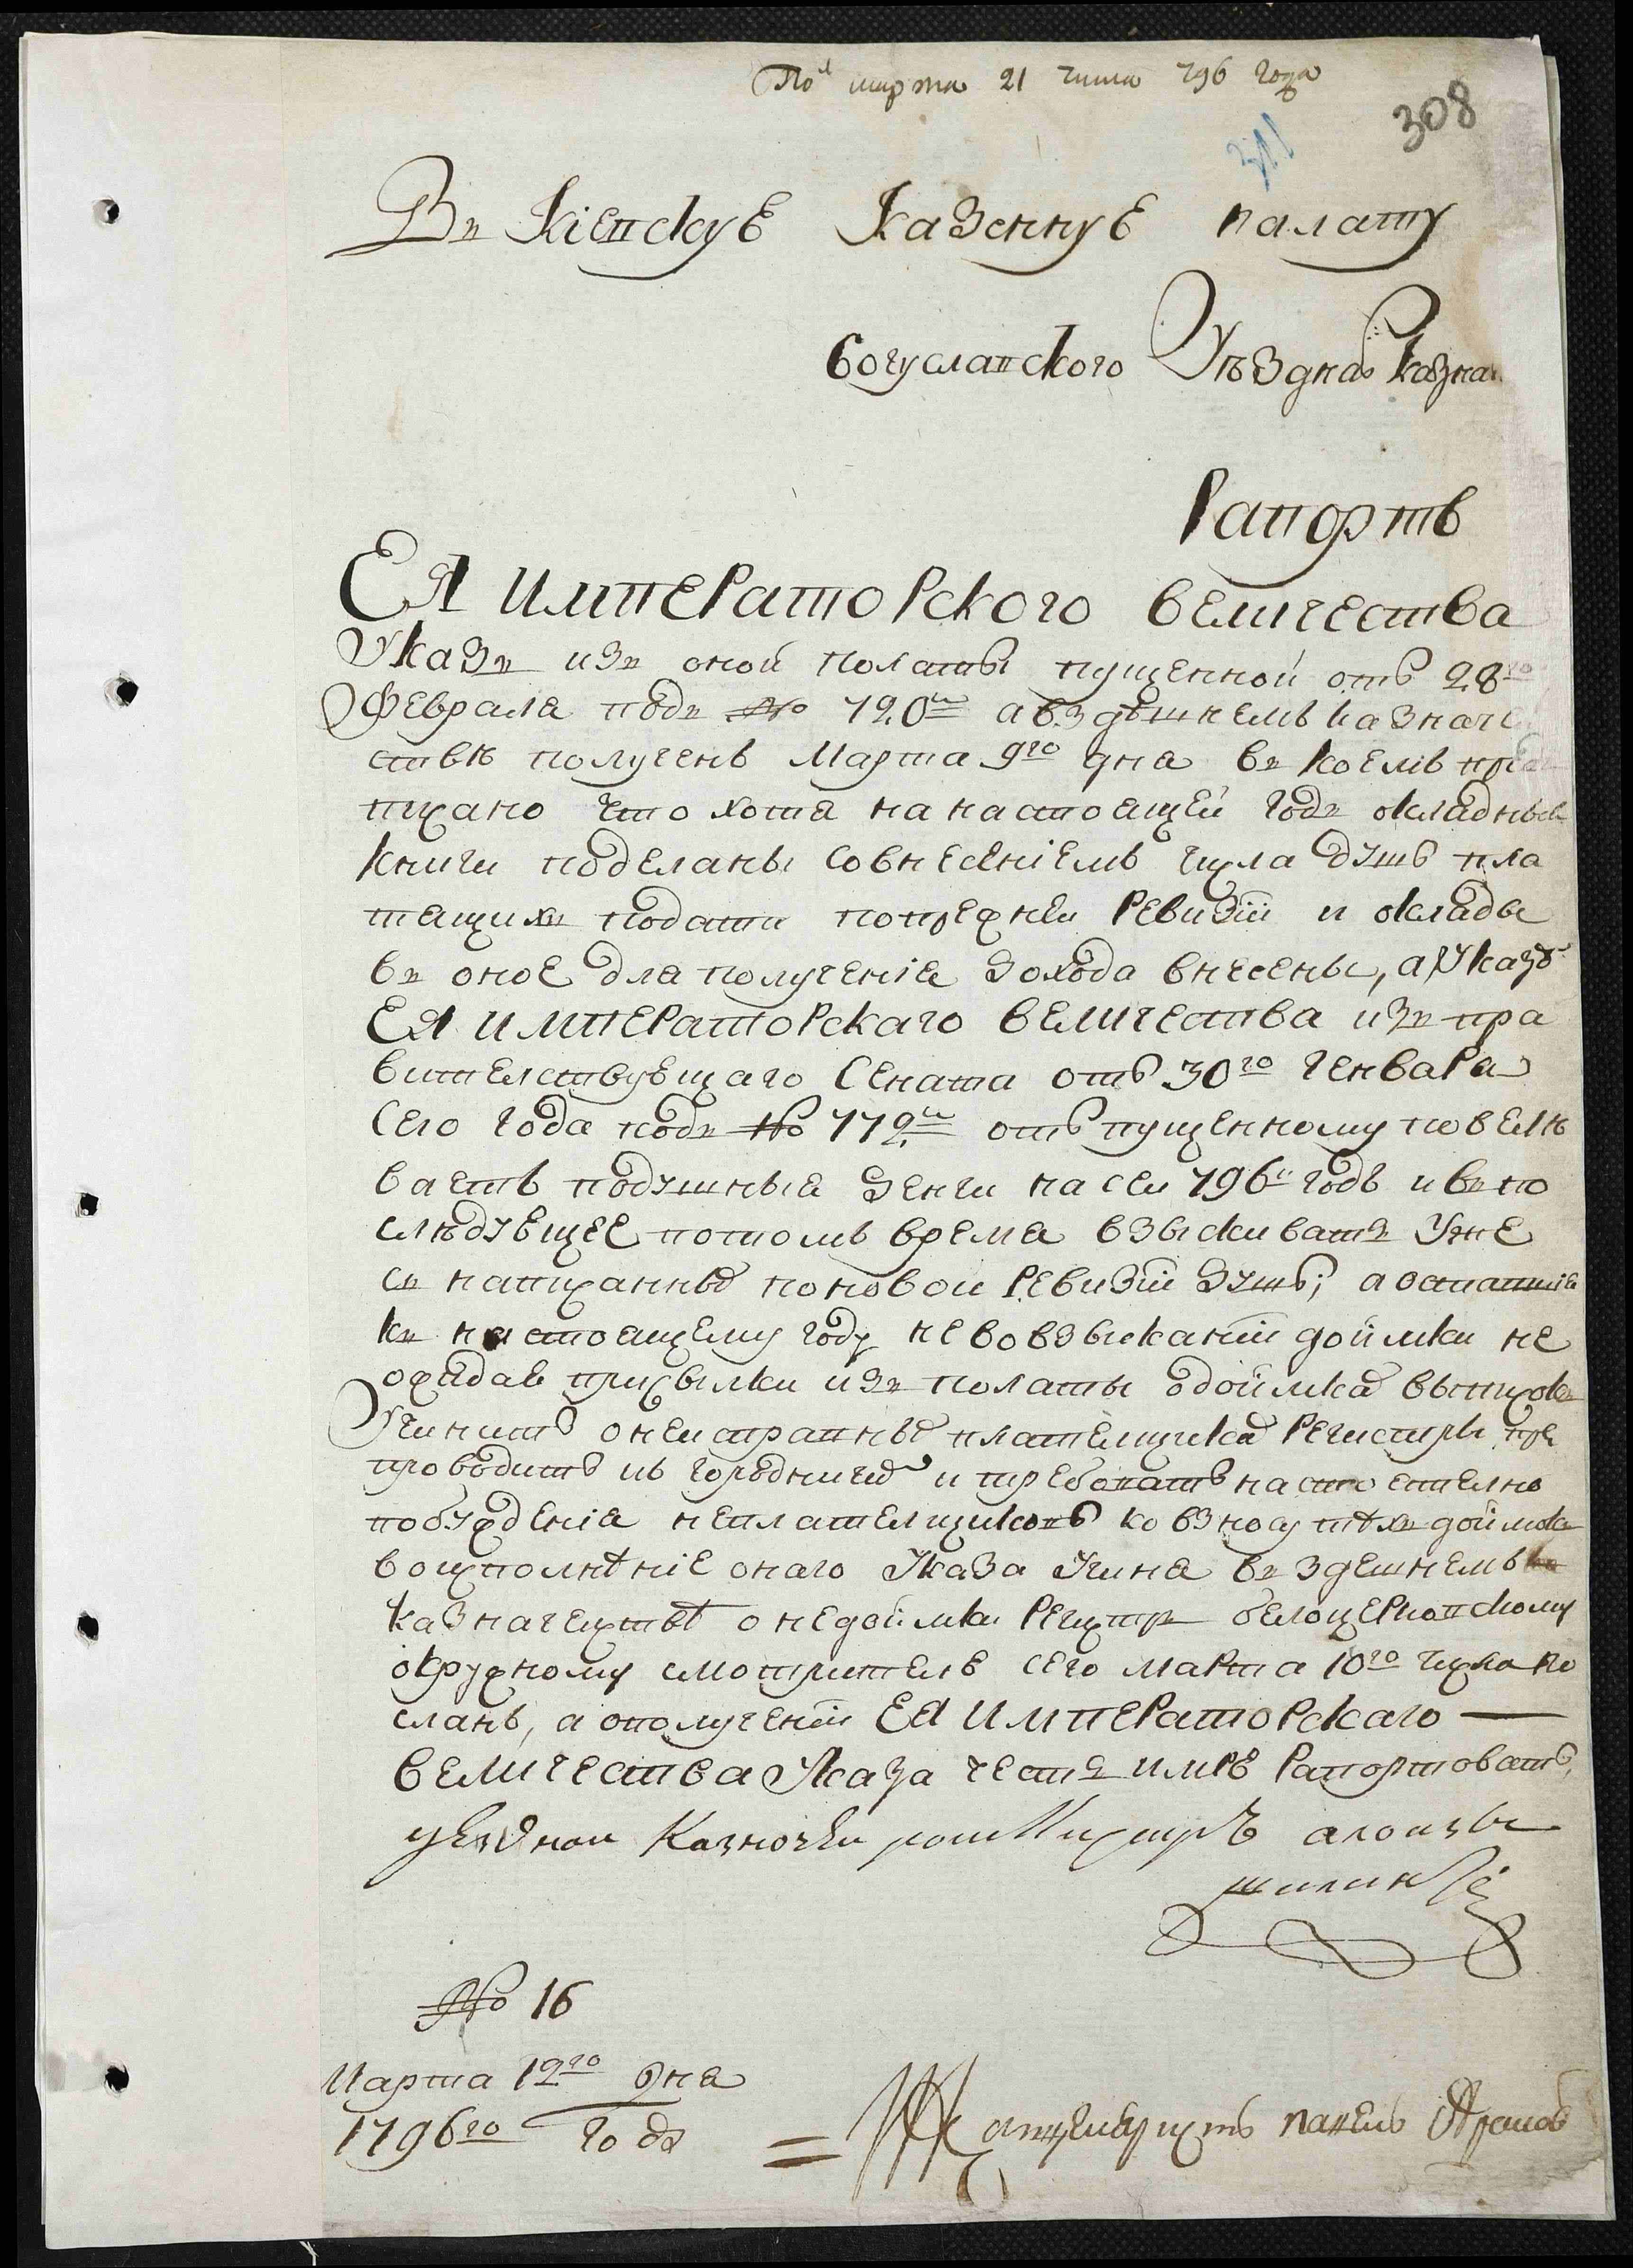 По^л марта 21 числа 796 года
308
311
Въ Кіевскую Казенную палату
Богуславского Уѣздна^го Казна
Рапортъ
Ея ИМПЕРАТОРСКОГО ВЕЛИЧЕСТВА
Указъ изъ оной полаты пущенной отъ 28^го
Февраля подъ № 720^м а въ здѣшнемъ казначе
ствѣ полученъ Марта 9^го дня въ коемъ пред
писано что хотя на настоящей годъ окладные
книги поделаны совнесеніемъ числа душъ пла
тящихъ подати попрежней Ревизіи и оклады
въ оное для полученія дохода внесены, а Указо^м
ЕЯ ИМПЕРАТОРСКАГО ВЕЛИЧЕСТВА изъ пра
вителствующаго Сената отъ 30^го Генваря
Сего Года подъ № 772^м отъ пущенному повелѣ
ваетъ подушныя денги на сей 796^й годъ и въ по
слѣдующее потомъ время взыскивать Уже
съ написанны^х поновой Ревизіи душъ; а оставшіе
къ настоящему году не во взысканіи доимки не
ожидая присылки изъ полаты одоимка^х выписокъ
Учинить о неисправны^х плателщика^х Регистры пре
проводить къ городничи^м и требовать настоетелно
побужденія неплателщиковъ ко взносу тѣхъ доимокъ
воисполнѣніе онаго Указа Учиня въ здешнемъ
казначеиствѣ о недоимки Регистръ белоцерковскому
окружному смотрителю сего марта 10^го числа по
сланъ, а ополученіи ЕЯ ИМПЕРАТОРСКАГО —
ВЕЛИЧЕСТВА Указа честь имѣю Рапортовать,
уездной Казночей ротмистръ алоизы
шилинскі
№ 16
Марта 12^го дня
1796^го года
= Канцеляристъ павелъ